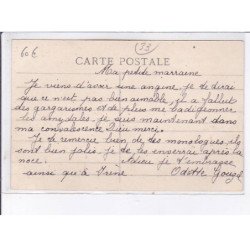 60€
53
CARTE POSTALE
Ma petite marraine
Je viens d'avoir une angine, je te dirai
que ce n'est pas bien aimable, il a fallut
des gargarismes et de plus me badigeonner
les amygdales, je suis maintenant dans
ma convalescente Dieu merci.
Je te remercie bien de tes monologues, ils
sont bien jolis, je te les enverrai après la
noce. Adieu je t'embrasse
ainsi que à Irène Odette